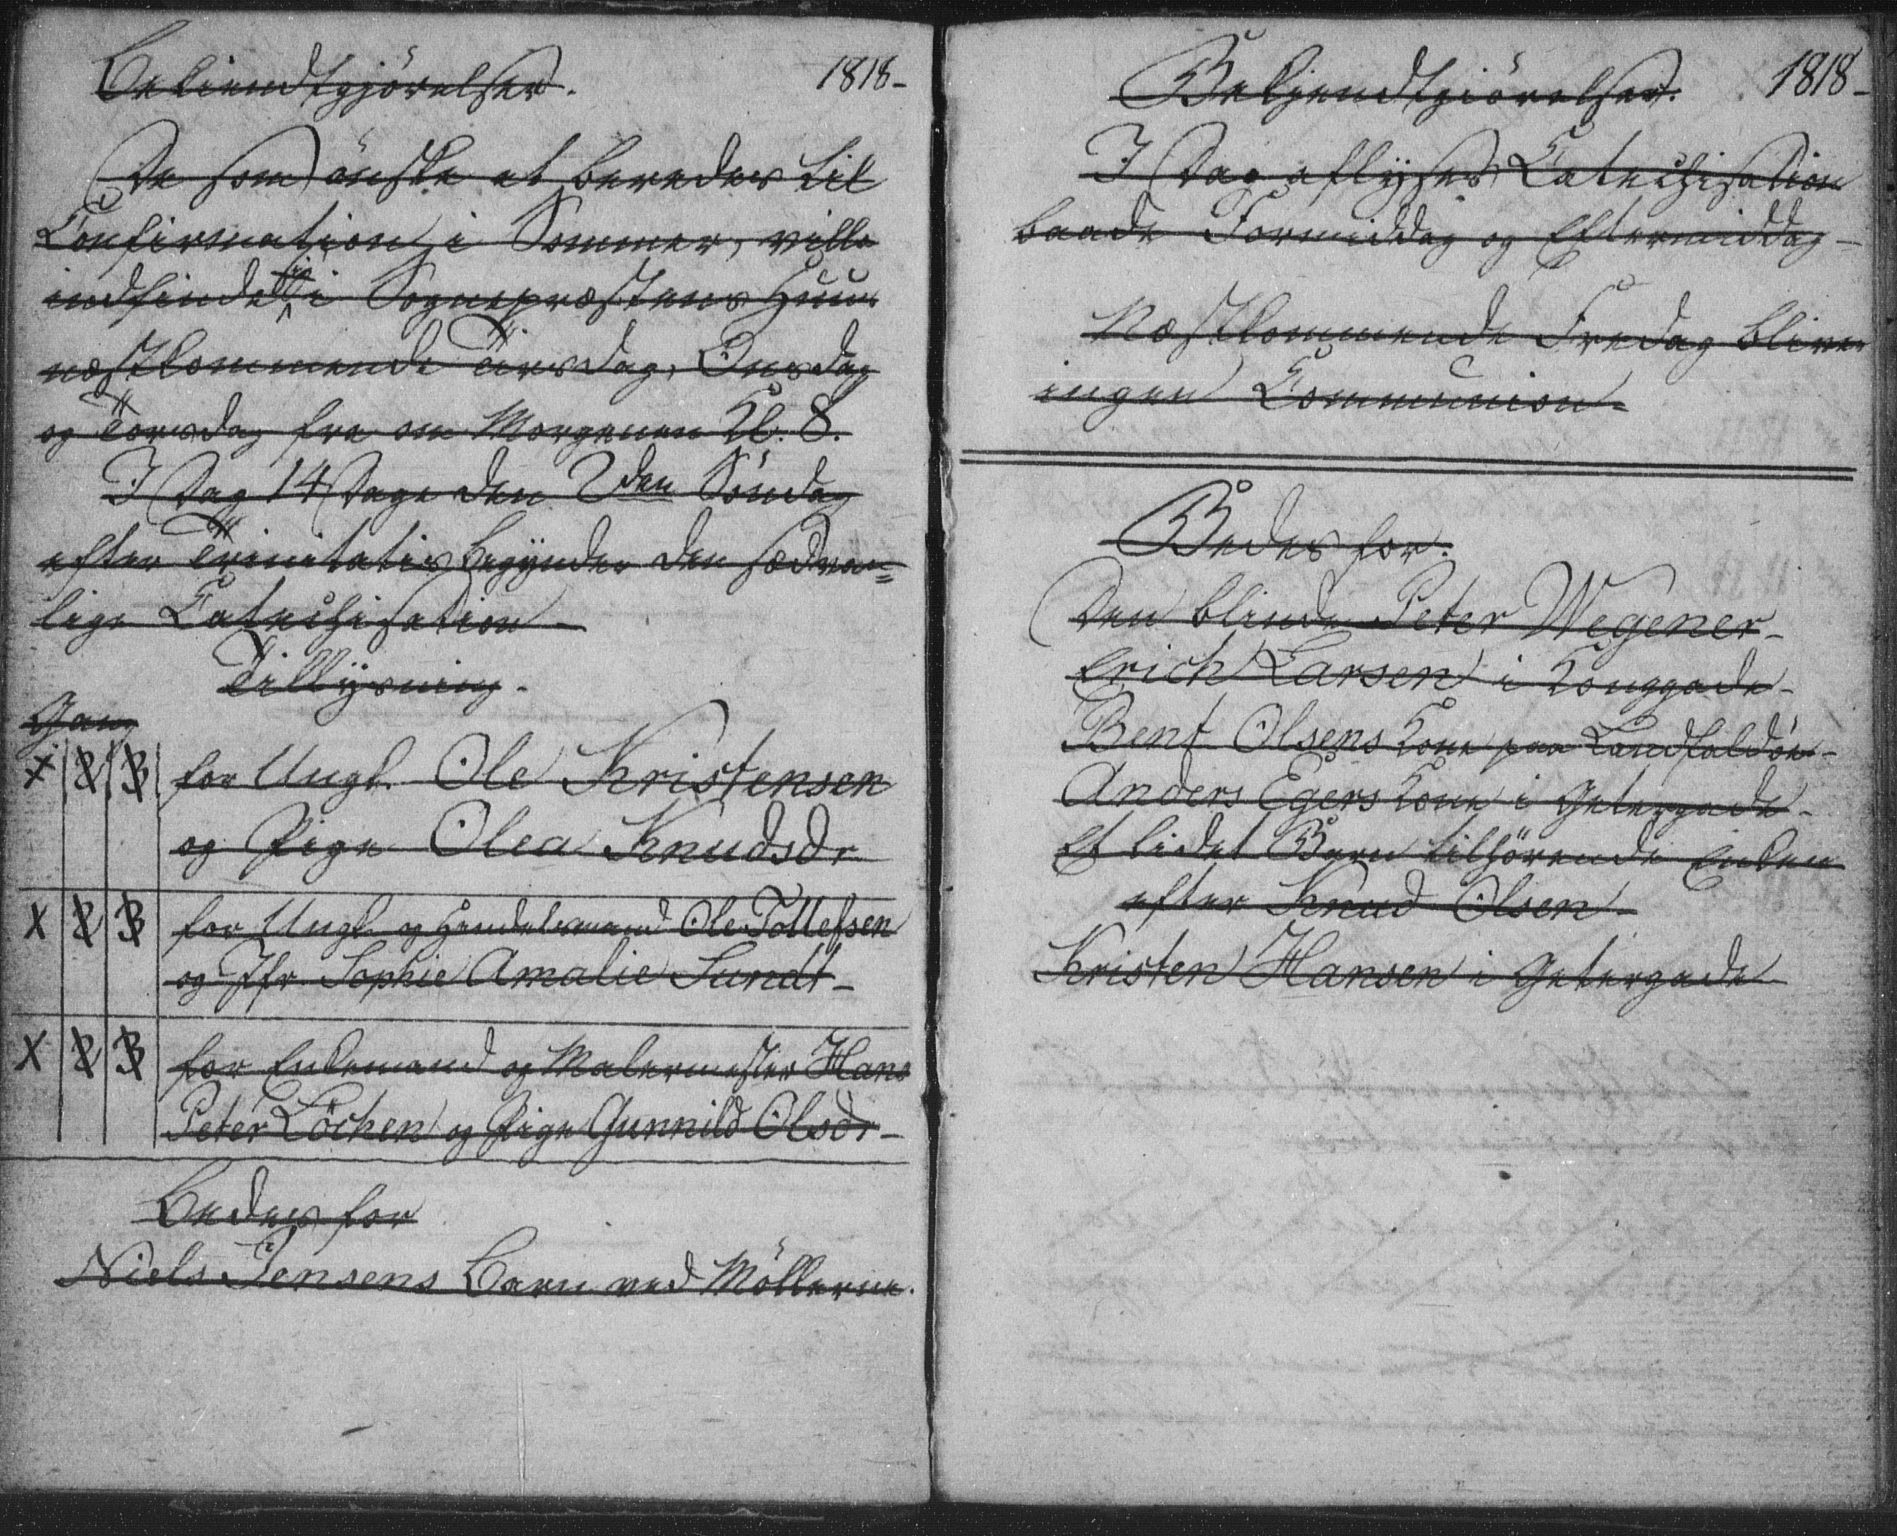 Bekiendtgjörelser. 1818-
De som önske at beredes til
Confirmation i Sommer, ville
indfinde sig i Sognepræstens Huus
næstkommende Tirsdag, Onsdag
og Torsdag fra om Morgenen Kl. 8.
I Dag 14 Dage den 2den Söndag
efter Trinitatis begynder den sædvan=
lige Catechisation
Tillysning.
Gang
X B B for Ungk. Ole Kristensen
og Pige Olea Knudsdr
X B B for Ungk. og Handelsmand Ole Tollefsen
og Jfr Sophie Amalie Sundt
X B B for Enkemand og Malermester Hans
Peter Löchen og Pige Gunnild Olsdr
Bedes for
Niels Jensens Barn ved Möllerne.
Bekjendtgiörelser. 1818-
I Dag aflyses Catechisation
baade Formiddag og Eftermiddag
Næstkommende Fredag bliver
ingen Communion
Bedes for.
Den blinde Peter Wegener
Erich Larsen i Konggade
Bent Olsens Kone paa Landfaldöen
Anders Egers Kone i Getergade
Et lidet Barn tilhörende Enken
efter Knud Olsen
Kristen Hansen i Getergade